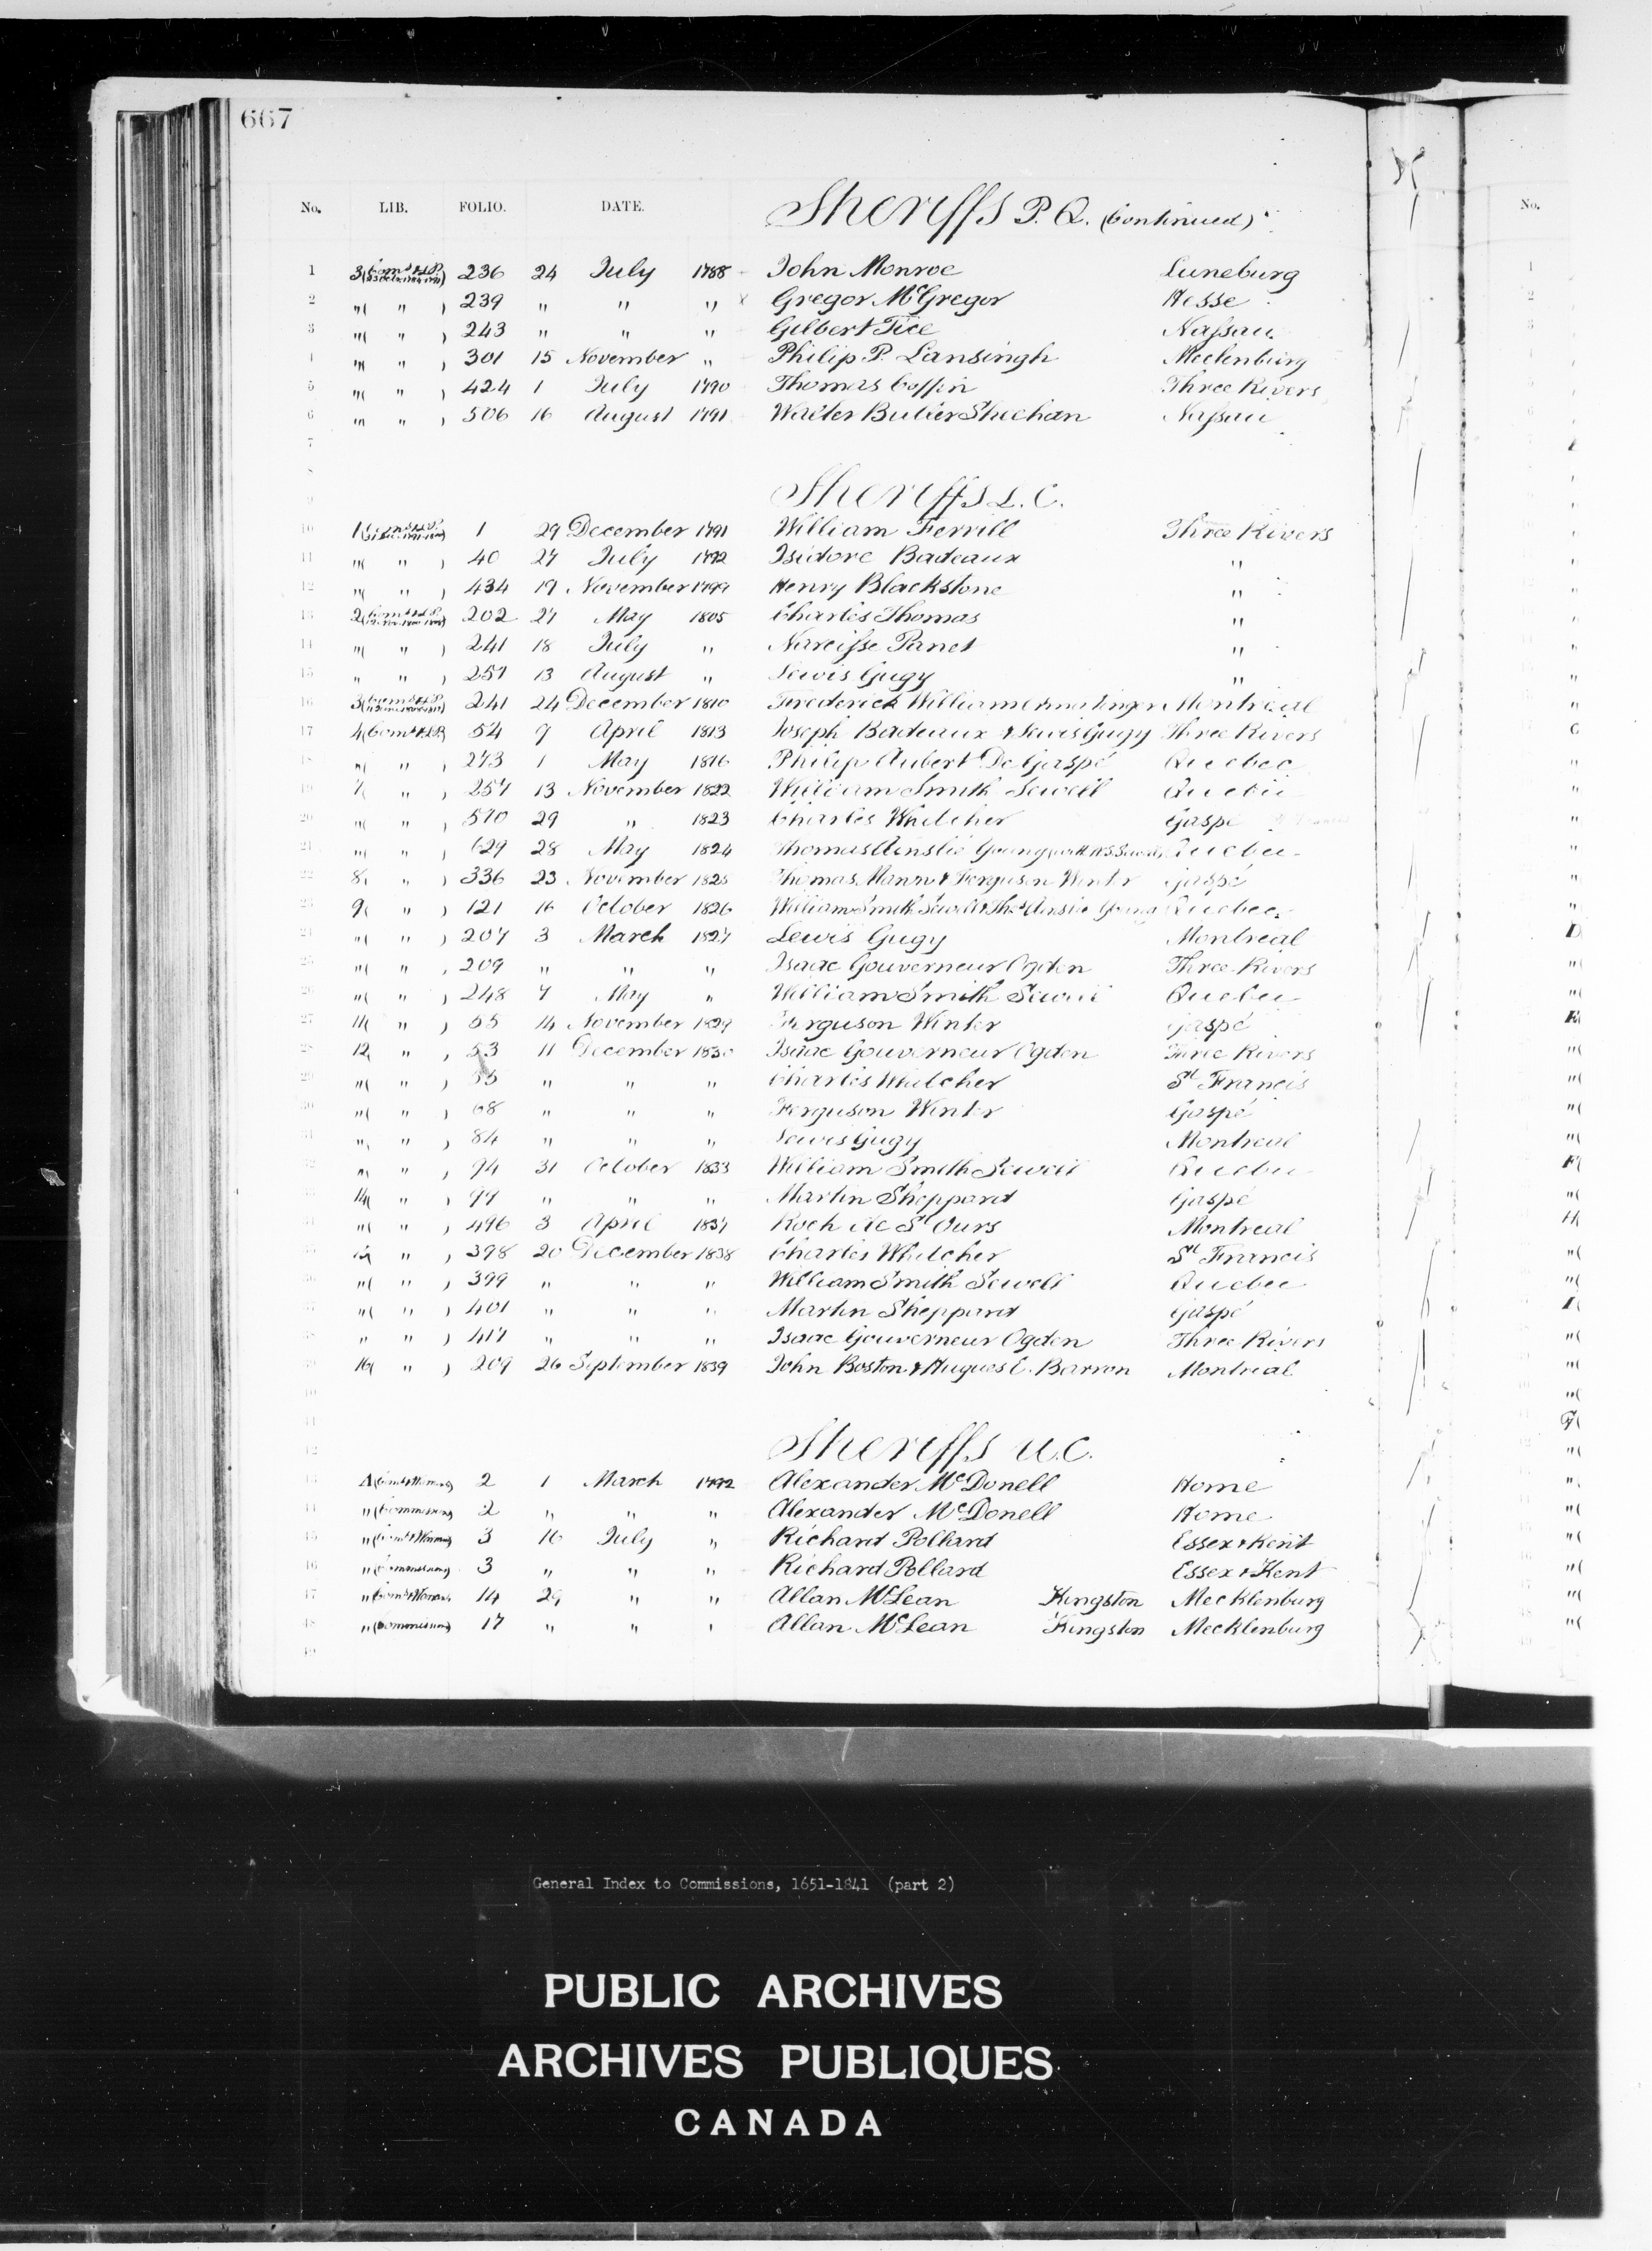 667
No. LIB. FOLIO. DATE. Sheriffs P. Q. (Continued) No.
1 3( 236 24 July 1788 John Monroe Luneburg
2 "( " ) 239 " " " x Gregor McGregor Hesse
3 "( " ) 243 " " " Gilbert Tice Nassau
4 "( " ) 301 15 November " Philip P. Lansingh Mecklenburg
5 "( " ) 424 1 July 1790 Thomas Coffin Three Rivers
6 "( " ) 506 16 August 1791 Walter Butler Shechan Nassau
7
8
9 Sheriffs L. C.
10 1( 1 29 December 1791 William Ferrill Three Rivers
11 "( " ) 40 27 July 1792 Isidore Badeaux "
12 "( " ) 434 19 November 1799 Henry Blackstone "
13 2( 202 27 May 1805 Charles Thomas "
14 "( " ) 241 18 July " Narcisse Panet "
15 " " ) 257 13 August " Lewis Gugy "
16 3( 241 24 December 1810 Frederick William Ermatinger Montreal
17 4( 54 9 April 1813 Joseph Badeaux & Lewis Gugy Three Rivers
18 "( " ) 273 1 May 1816 Philip Aubert De Gaspé Quebec
19 7( " ) 257 13 November 1822 William Smith Sewell Quebec
20 "( " ) 570 29 " 1823 Charles Whitcher Gaspé
21 "( " ) 629 28 May 1824 Thomas Ainslie Young Quebec
22 8( " ) 336 23 November 1825 Thomas Mann & Ferguson Winter Gaspé
23 9( " ) 121 16 October 1826 William Smith Sewell & Thos Ainslie Young Quebec
24 "( " ) 207 3 March 1827 Lewis Gugy Montreal
25 "( " ) 209 " " " Isaac Gouverneur Ogden Three Rivers
26 "( " ) 248 7 May " William Smith Sewell Quebec
27 11( " ) 55 14 November 1829 Ferguson Winter Gaspé
28 12( " ) 53 11 December 1830 Isaac Gouverneur Ogden Three Rivers
29 "( " ) 55 " " " Charles Whitcher St Francis
30 "( " ) 68 " " " Ferguson Winter Gaspé
31 " " ) 84 " " " Lewis Gugy Montreal
32 " " ) 94 31 October 1833 William Smith Sewell Quebec
33 14( " ) 99 " " " Martin Sheppard Gaspé
34 "( " ) 496 3 April 1837 Roch de St Ours Montreal
35 " ) 398 20 December 1838 Charles Whitcher St Francis
36 "( " ) 399 " " " William Smith Sewell Quebec
37 "( " ) 401 " " " Martin Sheppard Gaspé
38 " " ) 417 " " " Isaac Gouverneur Ogden Three Rivers
39 16( " ) 209 26 September 1839 John Boston & Hugues E. Barron Montreal
40
41
42 Sheriffs U.C.
43 A 2 1 March 1792 Alexander McDonell Home
44 "(Commissions) 2 " " " Alexander McDonell Home
45 " 3 16 July " Richard Pollard Essex & Kent
46 "(Commissions) 3 " " " Richard Pollard Essex & Kent
47 " 14 29 " " Allan McLean Kingston Mecklenburg
48 "(Commissions) 17 " " " Allan McLean Kingston Mecklenburg
49
General Index to Commissions, 1651-1841 (part 2)
PUBLIC ARCHIVES
ARCHIVES PUBLIQUES
CANADA